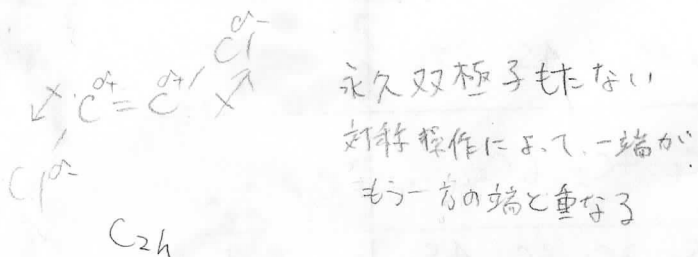 Clδ-
Cδ+ = Cδ+
Clδ-
C2h
永久双極子もたない
対称操作によって、一端が
もう一方の端と重なる